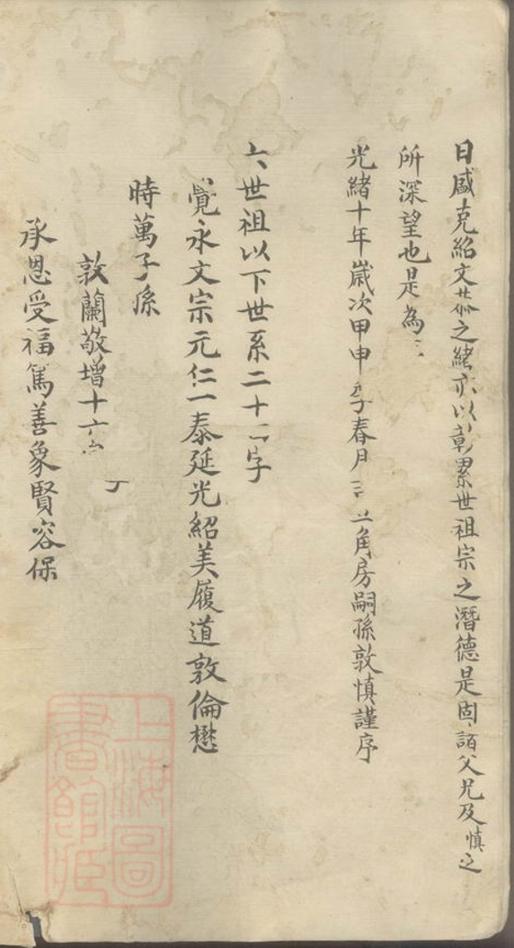 日盛克紹文恭之緒亦以彰累世祖宗之潛德是固諸父兄及慎之
所深望也是為
光緒十年歲次甲申季春月 二角房嗣孫敦慎謹序
六世祖以下世系二十二字
覺永文宗元仁一泰延光紹美履道敦倫懋
時萬子孫
敦蘭敬增十六字
承恩受福篤善象賢容保
上海圖書館藏